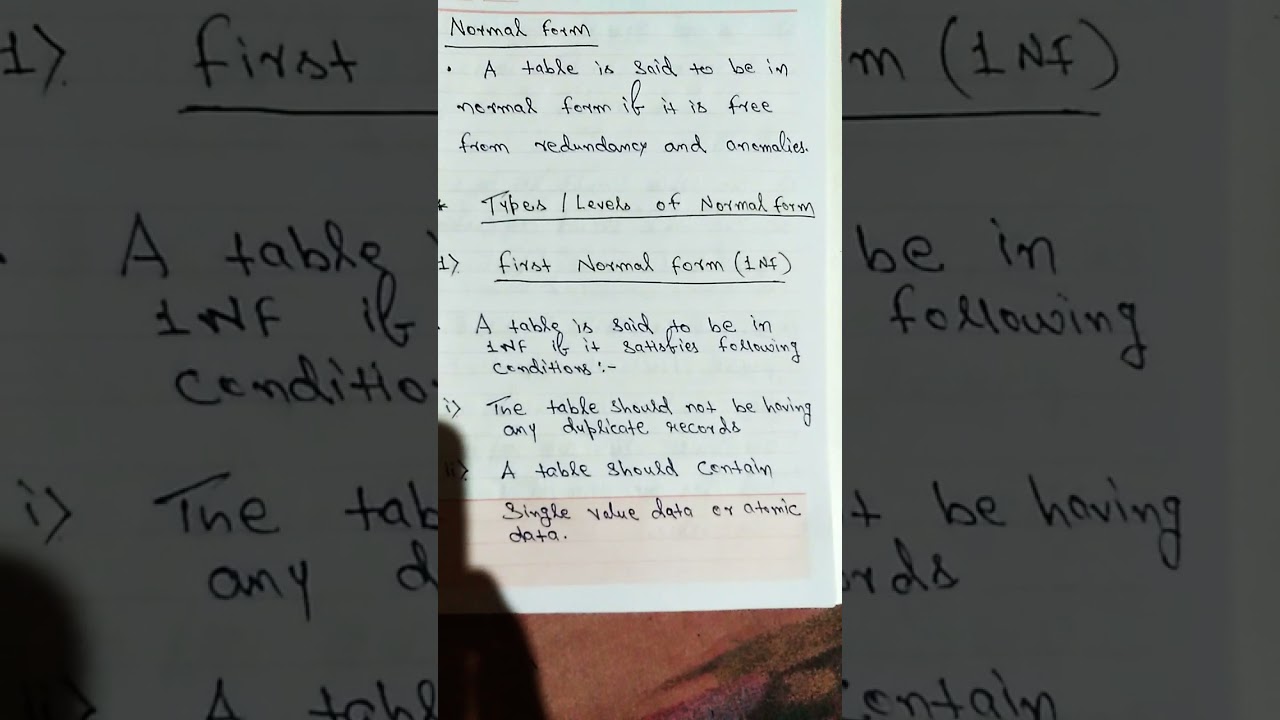 Normal form
• A table is said to be in
normal form if it is free
from redundancy and anomalies.
* Types / Levels of Normal form
1) first Normal form (1NF)
• A table is said to be in
1NF if it satisfies following
conditions :-
i) The table should not be having
any duplicate records
ii) A table should contain
Single value data or atomic
data.